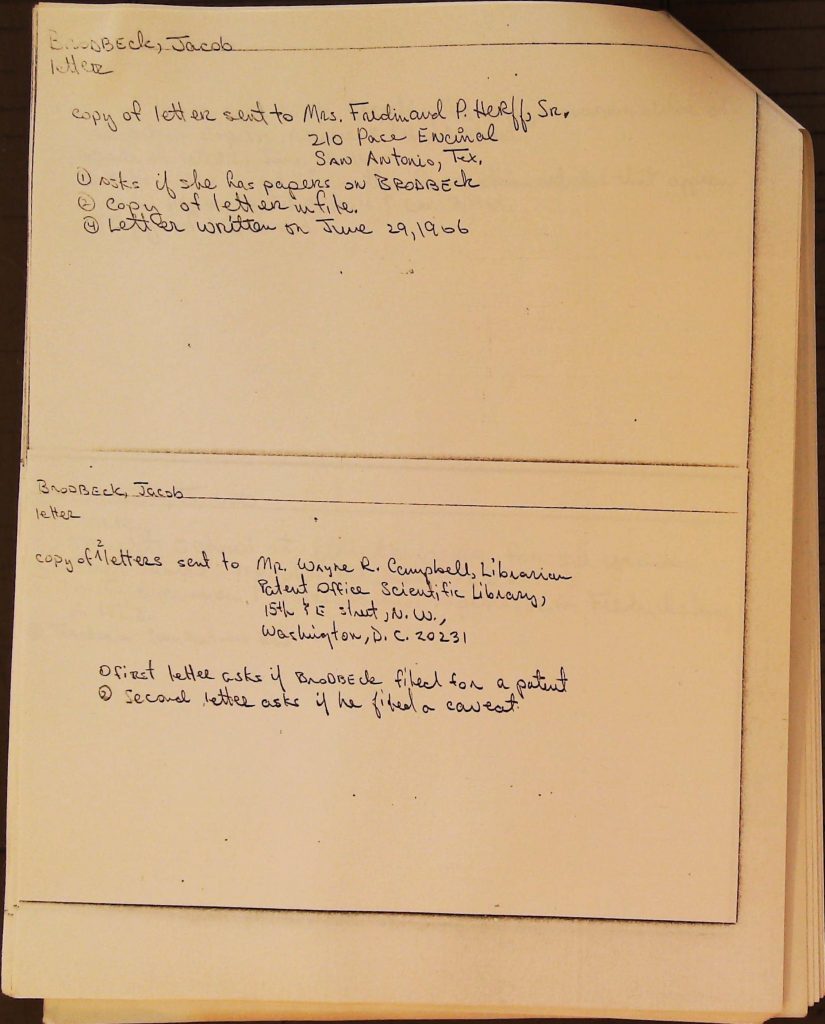 BRODBECK, Jacob
letter
copy of letter sent to Mrs. Fredinand P. HERff, SR.
210 Pace Encinal
SAN Antonio, Tex.
① Asks if she has papers on BRODBECK
② copy of letter in file.
④ Letter written on June 29, 1966
BRODBECK, Jacob
letter
copy of 2 letters sent to Mr. Wayne R. Campbell, Librarian
Patent Office Scientific Library,
15th & E street, N.W.,
Washington, D.C. 20231
① first letter asks if BRODBECK filed for a patent
② Second letter asks if he filed a caveat.